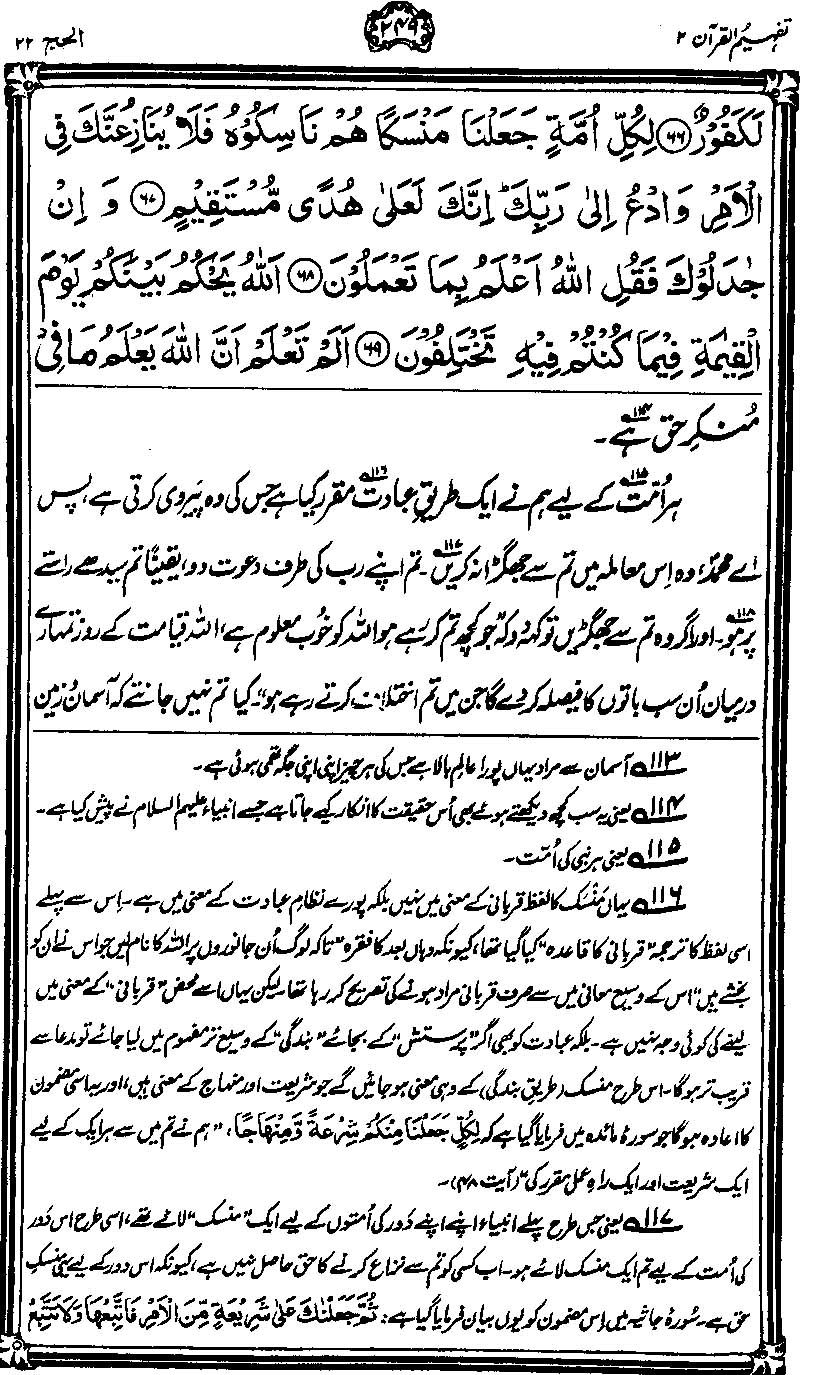 تفہیم القرآن ۲
۲۴۹
الحج ۲۲
لَكَفُوْرٌ ﴿۶۶﴾ لِكُلِّ اُمَّةٍ جَعَلْنَا مَنْسَكًا هُمْ نَاسِكُوْهُ فَلَا يُنَازِعُنَّكَ فِى
الْاَمْرِ وَادْعُ اِلٰى رَبِّكَ ؕ اِنَّكَ لَعَلٰى هُدًى مُّسْتَقِيْمٍ ﴿۶۷﴾ وَ اِنْ
جٰدَلُوْكَ فَقُلِ اللّٰهُ اَعْلَمُ بِمَا تَعْمَلُوْنَ ﴿۶۸﴾ اَللّٰهُ يَحْكُمُ بَيْنَكُمْ يَوْمَ
الْقِيٰمَةِ فِيْمَا كُنْتُمْ فِيْهِ تَخْتَلِفُوْنَ ﴿۶۹﴾ اَلَمْ تَعْلَمْ اَنَّ اللّٰهَ يَعْلَمُ مَا فِى
مُنکرِ حق ہے۱۱۴۔
ہر اُمّت۱۱۵ کے لیے ہم نے ایک طریقِ عبادت۱۱۶ مقرر کیا ہے جس کی وہ پیروی کرتی ہے، پس
اے محمدؐ، وہ اِس معاملہ میں تم سے جھگڑا نہ کریں۱۱۷۔ تم اپنے رب کی طرف دعوت دو، یقیناً تم سیدھے راستے
پر ہو۱۱۸۔ اور اگر وہ تم سے جھگڑیں تو کہہ دو کہ "جو کچھ تم کر رہے ہو اللہ کو خُوب معلوم ہے، اللہ قیامت کے روز تمہارے
درمیان اُن سب باتوں کا فیصلہ کر دے گا جن میں تم اختلاف کرتے رہے ہو"۔ کیا تم نہیں جانتے کہ آسمان و زمین
۱۱۳ آسمان سے مراد یہاں پورا عالمِ بالا ہے جس کی ہر چیز اپنی اپنی جگہ تھمی ہوئی ہے۔
۱۱۴ یعنی یہ سب کچھ دیکھتے ہوئے بھی اُس حقیقت کا انکار کیے جاتا ہے جسے انبیاء علیہم السلام نے پیش کیا ہے۔
۱۱۵ یعنی ہر نبی کی اُمّت۔
۱۱۶ یہاں مَنْسَک کا لفظ قربانی کے معنی میں نہیں بلکہ پورے نظامِ عبادت کے معنی میں ہے۔ اِس سے پہلے
اسی لفظ کا ترجمہ "قربانی کا قاعدہ" کیا گیا تھا، کیونکہ وہاں بعد کا فقرہ "تاکہ لوگ اُن جانوروں پر اللہ کا نام لیں جو اس نے اُن کو
بخشے ہیں" اس کے وسیع معانی میں سے صرف قربانی مراد ہونے کی تصریح کر رہا تھا۔ لیکن یہاں اسے محض "قربانی" کے معنی میں
لینے کی کوئی وجہ نہیں ہے۔ بلکہ عبادت کو بھی اگر "پرستش" کے بجائے "بندگی" کے وسیع تر مفہوم میں لیا جائے تو مدعا سے
قریب تر ہوگا۔ اس طرح منسک (طریقِ بندگی) کے وہی معنی ہو جائیں گے جو شریعت اور منہاج کے معنی ہیں، اور یہ اسی مضمون
کا اعادہ ہوگا جو سورۂ مائدہ میں فرمایا گیا ہے کہ لِكُلٍّ جَعَلْنَا مِنْكُمْ شِرْعَةً وَّمِنْهَاجًا، "ہم نے تم میں سے ہر ایک کے لیے
ایک شریعت اور ایک راہِ عمل مقرر کی" (آیت ۴۸)۔
۱۱۷ یعنی جس طرح پہلے انبیاء اپنے اپنے دَور کی اُمتوں کے لیے ایک "منسک" لائے تھے، اسی طرح اس دَور
کی اُمت کے لیے تم ایک منسک لائے ہو۔ اب کسی کو تم سے نزاع کرنے کا حق حاصل نہیں ہے، کیونکہ اس دور کے لیے یہی منسکِ
حق ہے۔ سُورۂ جاثیہ میں اِس مضمون کو یوں بیان فرمایا گیا ہے: ثُمَّ جَعَلْنٰكَ عَلٰى شَرِيْعَةٍ مِّنَ الْاَمْرِ فَاتَّبِعْهَا وَلَا تَتَّبِعْ